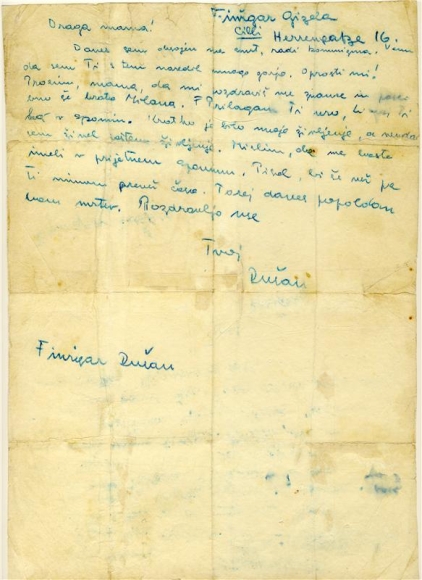 Finžgar Gizela
Cilli Herrengatze 16.
Draga mama!
Danes sem obsojen na smrt, radi komunizma. Vem
da sem Ti s tem naredil mnogo gorja. Oprosti mi!
Prosim, mama, da mi pozdraviš vse znance in
še brata Milana. Prilagam Ti uro,
kaj v spomin. Kratko je bilo moje življenje, a vendar
sem živel življenje. Mislim, da me boste
imeli v prijetnem spominu. Pisal bi še več pa
ti nimam preveč časa. Torej danes popoldan
bom mrtev. Pozdravljo vse
Tvoj
Dušan
Finžgar Dušan